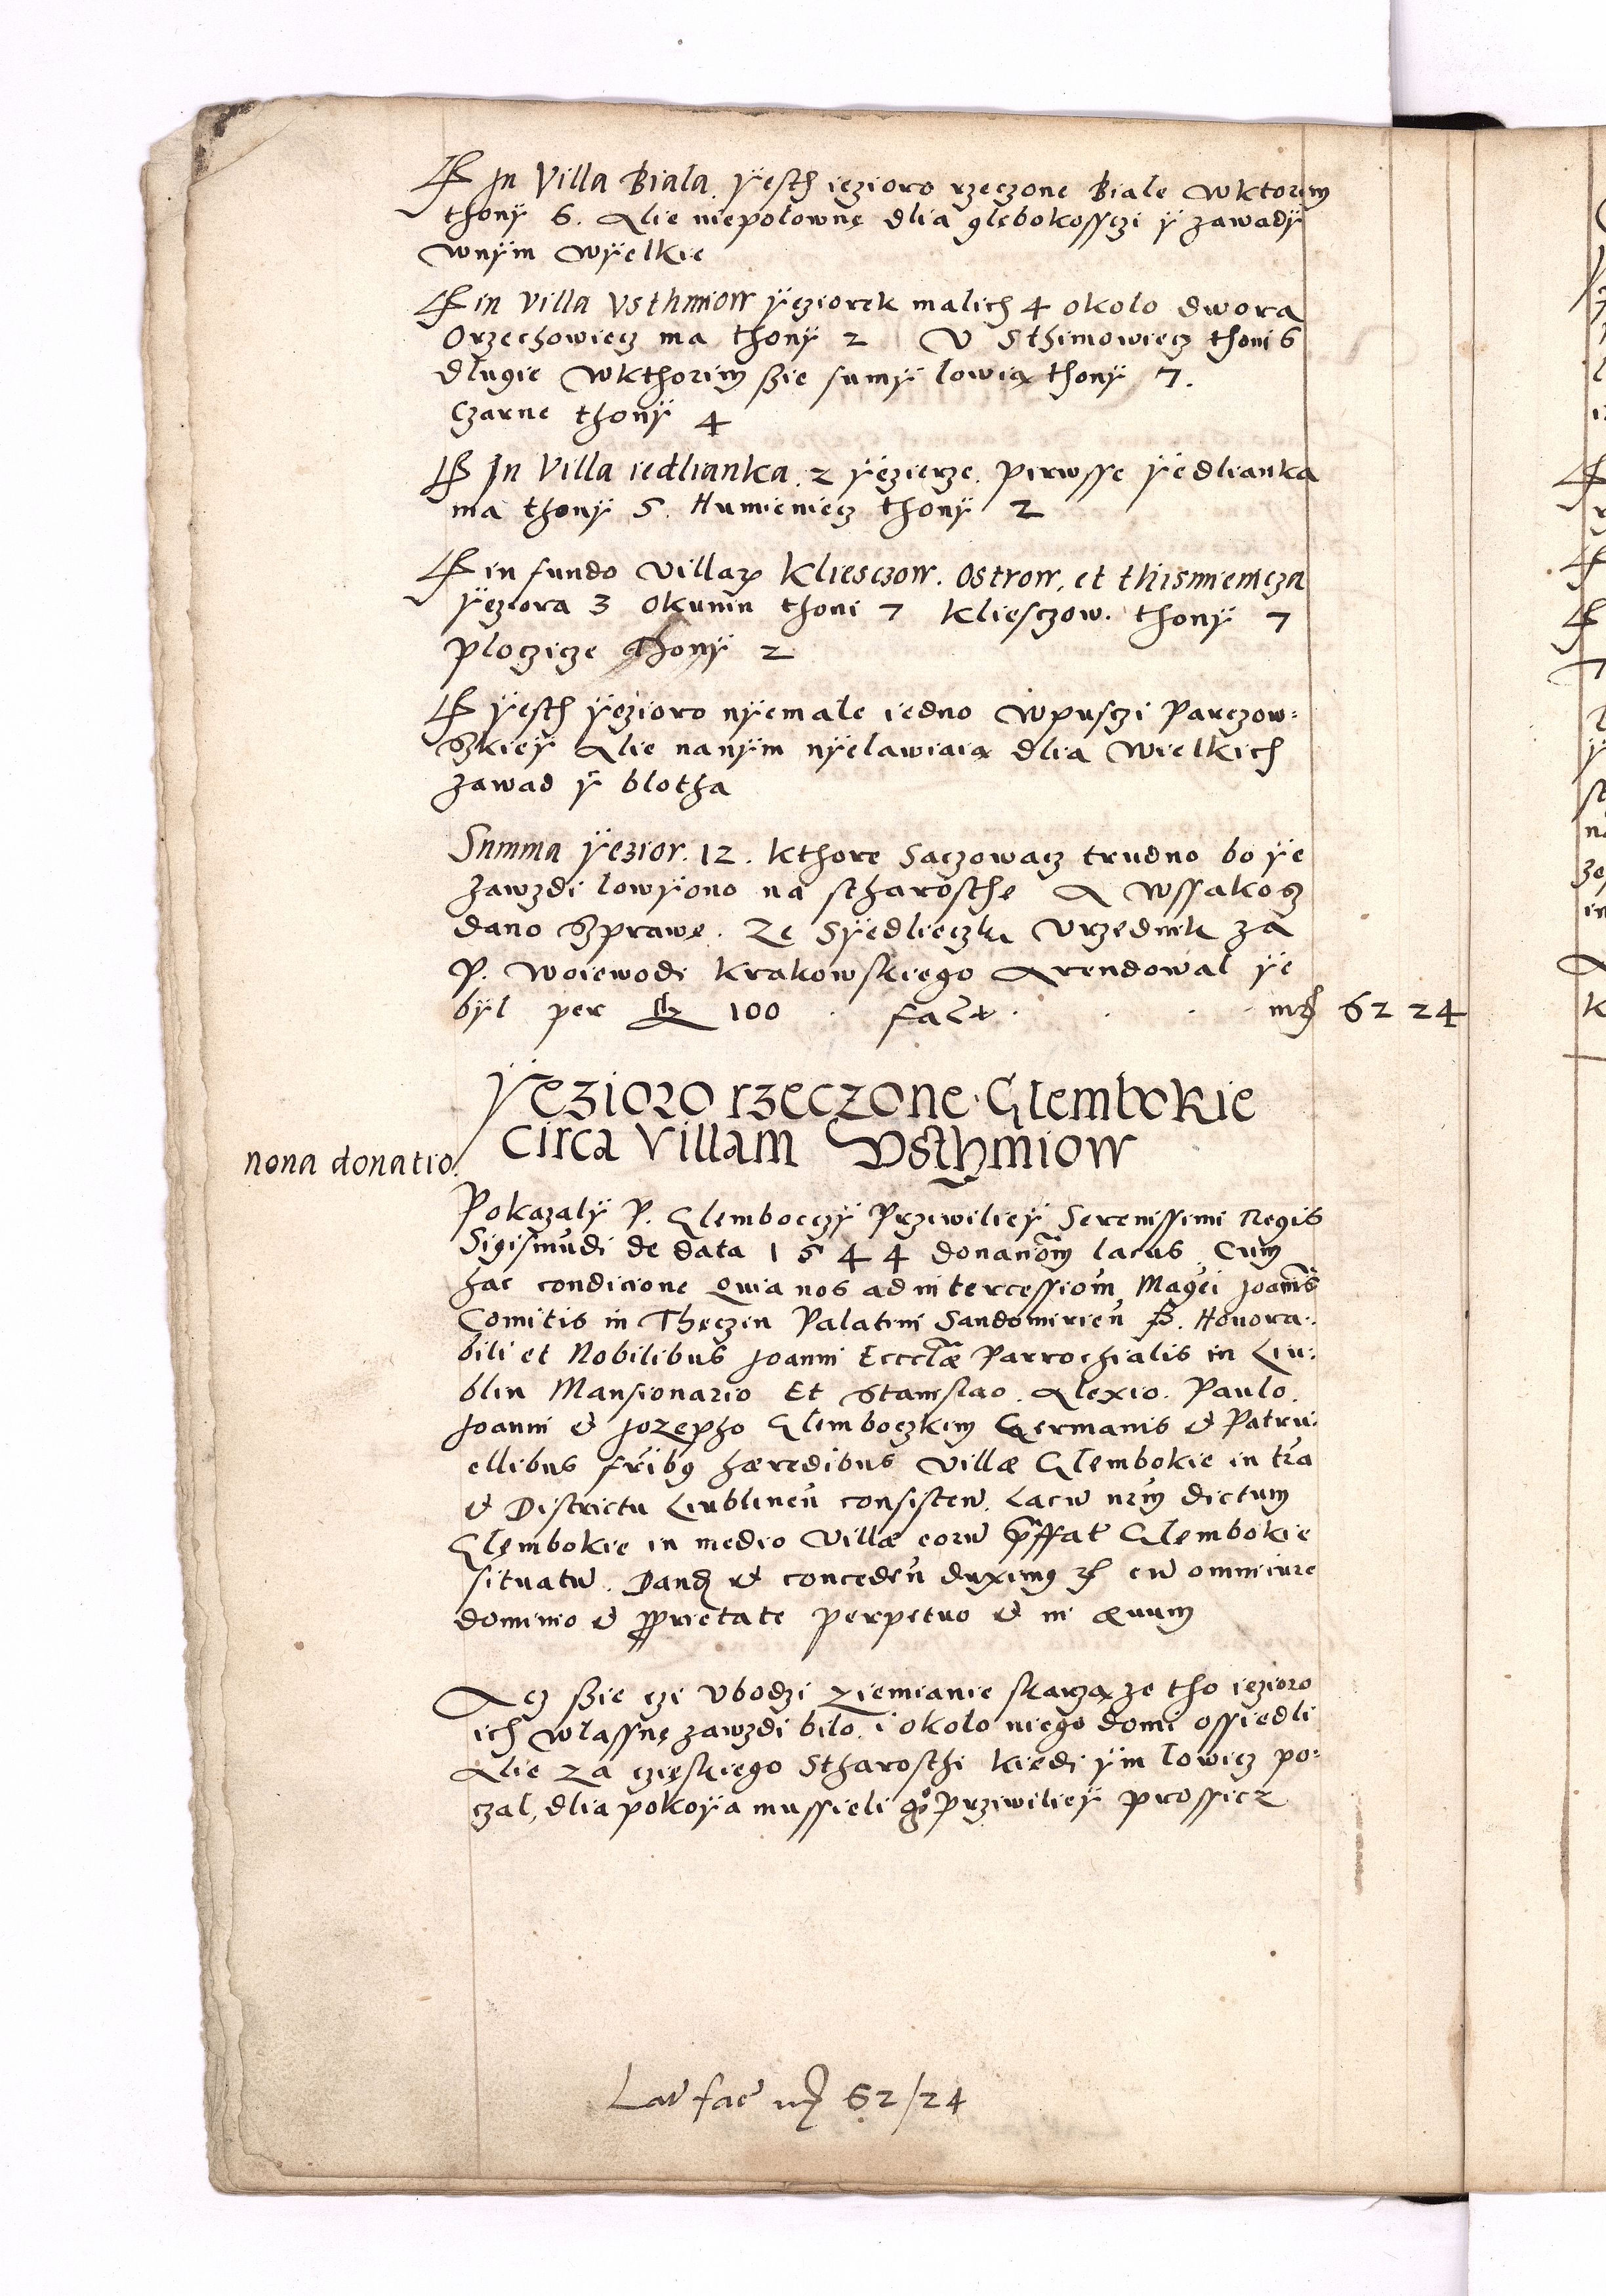 In Villa Biala yesth iezioro rzeczone Biale wktorim
thonÿ 6. Alie niepolownę dlia głębokossczi ÿ zawadÿ
wnÿm wÿelkie
in villa Vsthmiow ÿeziorek malich 4 okolo dwora
Orzechowiecz ma thonÿ 2 V Sthimowiecz thoni 6
dlugie wkthorim ßie sumÿ lowią thonÿ 7.
Czarne thonÿ 4
In Villa iedlianka. 2 ÿezierze. pirwsse ÿedlianka
ma thonÿ 5. Humieniecz thonÿ 2
in fundo villar Kliesczow. Ostrow. et thismienicza
ÿeziora 3 Okunin thoni 7 Kliesczow. thonÿ 7
ploczicze thonÿ 2
ÿesth ÿezioro nÿemale iedno wpusczi Parczow:
Szkieÿ Alie nanÿm nÿelawiaią dlia wielkich
zawad ÿ blotha
Summa ÿezior. 12. kthore Saczowacz trudno bo ÿe
zawzdi lowÿono na scharosthę A wssakosz
dano Szprawę. Ze Sÿedlieczki vrzednik za
P. woiewodi krakowskiego Arendowal ÿe
bÿl per 100 . . . . 62 24
ÿezioro rzeczone Glembokie
circa villam Vsthmiow
nona donatio.
Pokazalÿ P. Glemboczÿ Przÿwilieÿ Serenissimi Regis
Sigismudi de data 1544 donanom lacus Cum
hac condicione Quia nos ad intercessiom Magci Joannis
Comitis in Theczen Palatini Sandomirien Honora:
bili et Nobilibus Joanni Ecclae Parrochialis in Lu:
blin Mansionario Et Stanislao. Alexio. Paulo.
Joanni et Jozepho Glemboczkim Germanis et Patru:
ellibus fribus hæredibus villæ Glembokie in tra
et Districtu Lublinen consisten. Lacu nrm dictum
Glembokie in medio villæ eoru pffat Glembokie
situatu. Dand et conceden duximus cu omni iure
dominio et pprietate perpetuo et in æuum
Acz ßie czi vbodzi ziemianie skarzą ze tho iezioro
ich wlassnę zawzdi bilo. i okolo niego domi ossiedli
Alie za czięskiego Stharosthi kiedi ÿm lowicz po:
czal, dlia pokoÿa mussieli go przÿwilieÿ prossicz
Lat fac 62/24